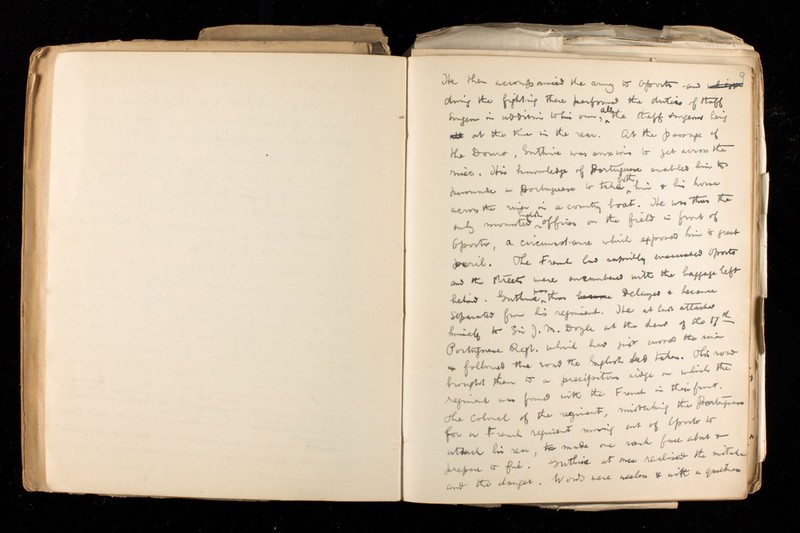 9
He then accompanied the army to Oporto and
during the fighting there performed the duties of Staff
Surgeon in addition to his own, all the Staff Surgeons being
at the time in the rear. At the passage of
the Douro, Guthrie was anxious to get across the
river. His knowledge of Portuguese enabled him to
persuade a Portuguese to take both him & his horse
across the river in a country boat. He was thus the
only mounted English officer on the field in front of
Oporto, a circumstance which exposed him to great
peril. The French had rapidly evacuated Oporto
and the streets were encumbered with the baggage left
behind. Guthrie was thus delayed & became
separated from his regiment. He at last attached
himself to Sir J. M. Doyle at the head of the 17th
Portuguese Regt. which had just crossed the river
& followed the road the English had taken. This road
brought them to a precipitous ridge on which the
regiment was found with the French in their front.
The Colonel of the regiment, mistaking the Portuguese
for a French regiment moving out of Oporto to
attack his rear, made one rank face about &
prepare to fire. Guthrie at once realised the mistake
and the danger. Words were useless & with a